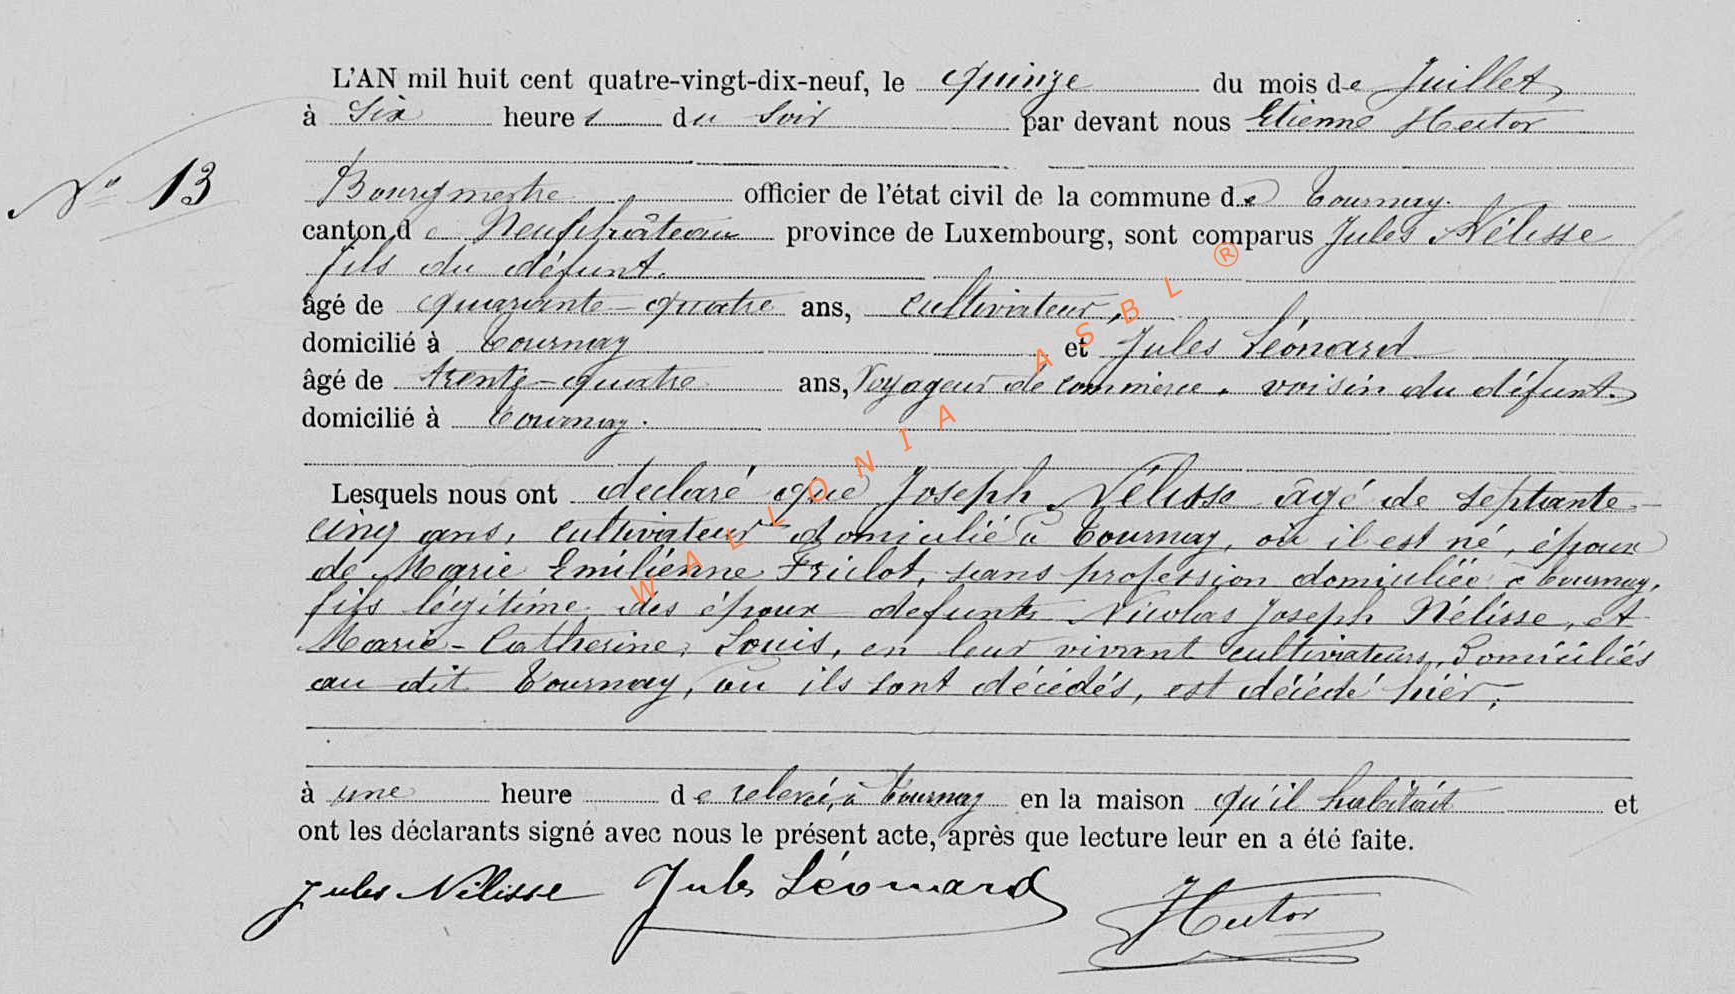 L'AN mil huit cent quatre-vingt-dix-neuf, le quinze du mois de Juillet,
à six heures du soir par devant nous Etienne Hector
N° 13
Bourgmestre officier de l'état civil de la commune de Tournay.
canton de Neufchâteau province de Luxembourg, sont comparus Jules Nélisse
fils du défunt.
âgé de quarante-quatre ans, cultivateur,
domicilié à Tournay et Jules Léonard
âgé de trente-quatre ans, Voyageur de commerce, voisin du défunt.
domicilié à Tournay.
Lesquels nous ont déclaré que Joseph Nélisse âgé de septante-
cinq ans, cultivateur domicilié à Tournay, où il est né, époux
de Marie Emilienne Friclot, sans profession domiciliée à Tournay,
fils légitime des époux defunts Nicolas Joseph Nélisse, et
Marie-Catherine Louis, en leur vivant cultivateurs, Domiciliés
au dit Tournay, où ils sont décédés, est décédé hier,
à une heure de relevée, à Tournay en la maison qu'il habitait et
ont les déclarants signé avec nous le présent acte, après que lecture leur en a été faite.
Jules Nélisse Jules Léonard Hector
WALLONIA ASBL ®